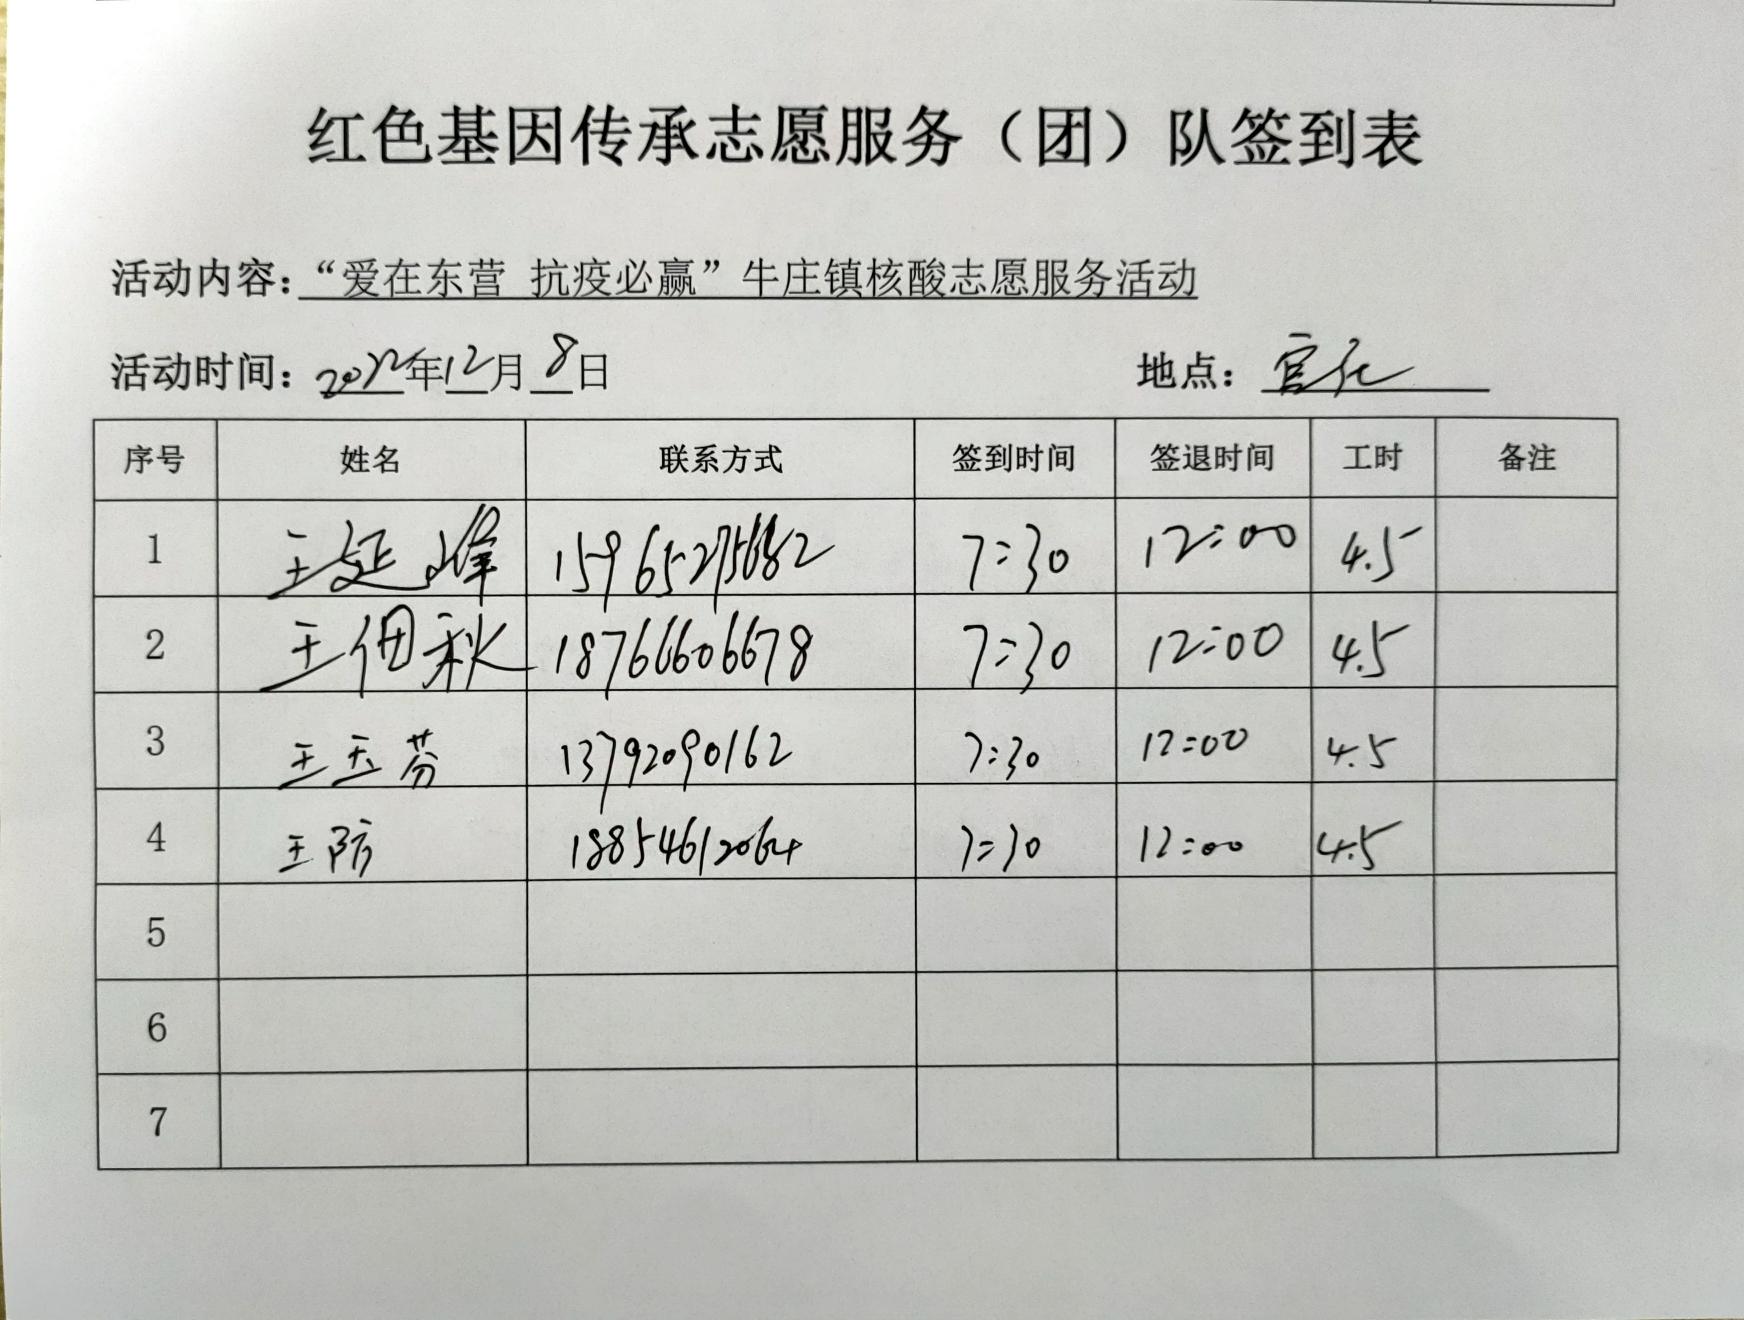 红色基因传承志愿服务（团）队签到表
活动内容：“爱在东营 抗疫必赢”牛庄镇核酸志愿服务活动
活动时间：2022年12月8日 地点：官
序号 姓名 联系方式 签到时间 签退时间 工时 备注
1 王延峰 15965275682 7:30 12:00 4.5
2 王佃秋 18766606678 7:30 12:00 4.5
3 王玉芬 13792090162 7:30 12:00 4.5
4 王防 18854612064 7:30 12:00 4.5
5
6
7